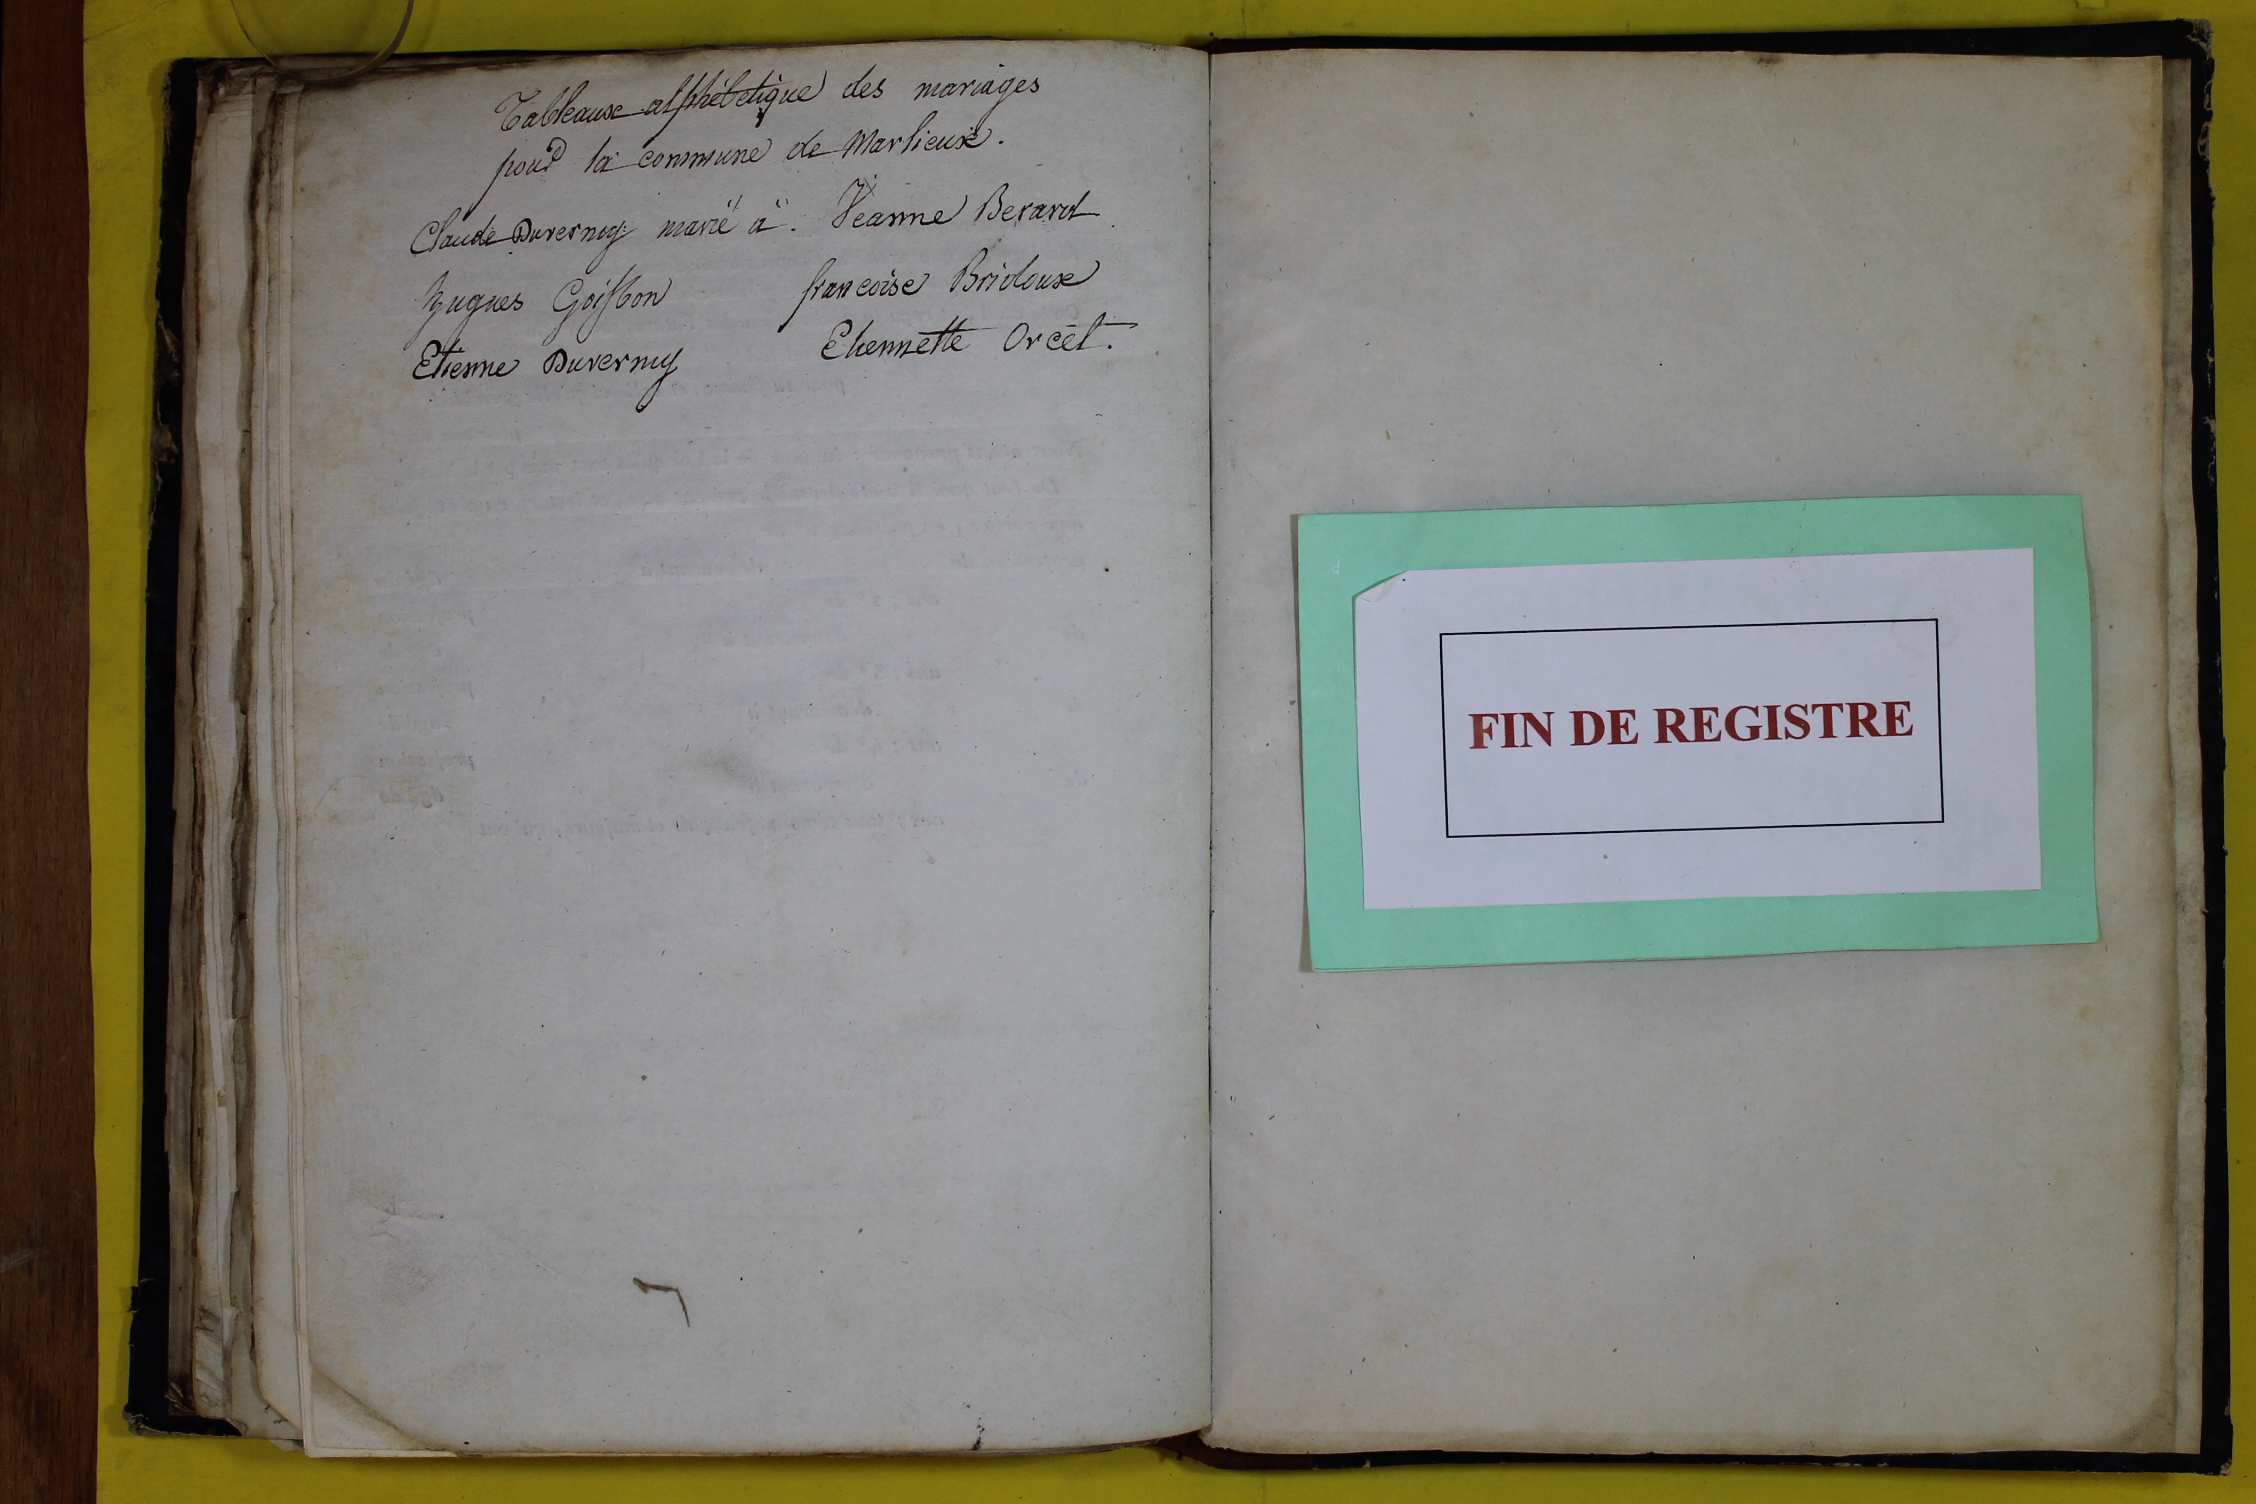 Tableaux alphébetique des mariages
pour la commune de Marlieux.
Claude Duverney marié à Jeanne Berard
hugues Goiffon francoise Bridoux
Etienne Duverney Etiennette Orcet.
FIN DE REGISTRE